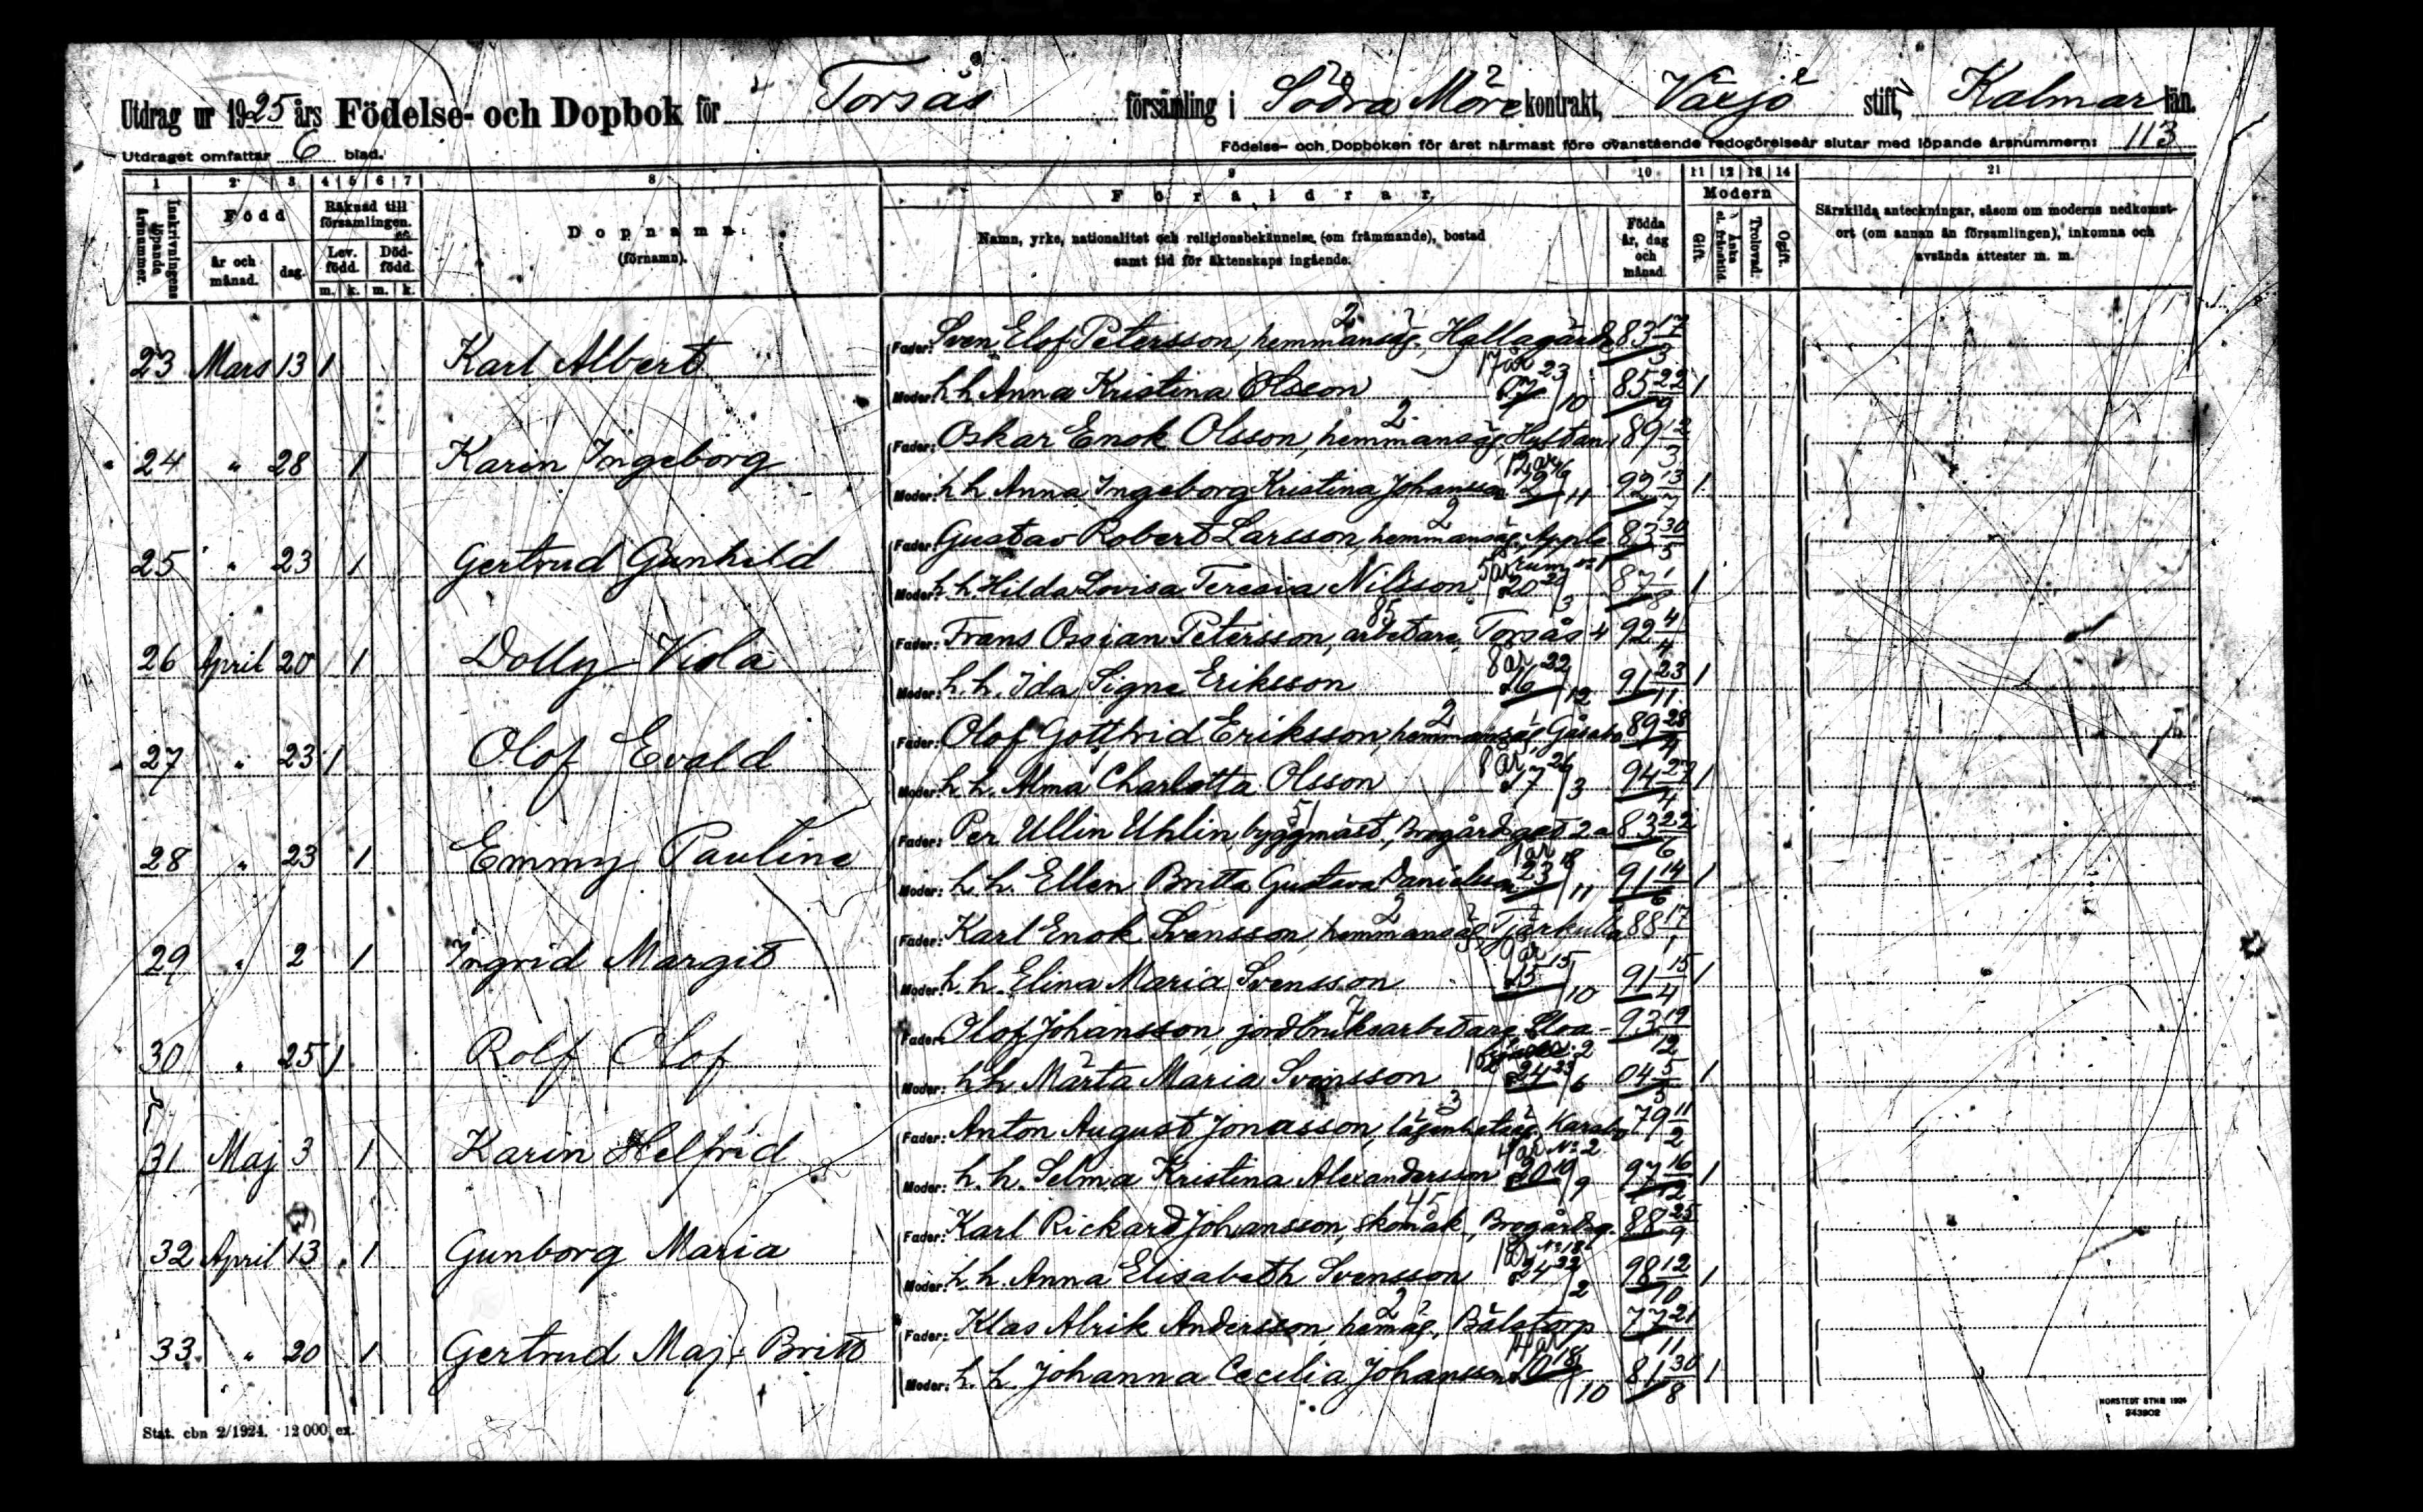 Utdrag ur 1925 års Födelse- och Dopbok för Torsås församling i Södra Möre kontrakt, Växjö stift, Kalmar län.
Utdraget omfattar 6 blad. Födelse- och Dopboken för året närmast före ovanstående redogörelseår slutar med löpande årsnummern: 113
1 2 3 4 5 6 7 8 9 10 11 12 13 14 21
Inskrivningens löpande årsnummer.
Född
år och månad.
dag.
Räknad till församlingen.
Lev. född.
Död-född.
m. k. m. k.
Dopnamn
(förnamn).
Föräldrar.
Namn, yrke, nationalitet och religionsbekännelse (om främmande), bostad
samt tid för äktenskaps ingående.
Födda
år, dag
och
månad.
Modern
Gift.
Änka el. frånskild.
Trolovad.
Ogift.
Särskilda anteckningar, såsom om moderns nedkomst-
ort (om annan än församlingen), inkomna och
avsända attester m. m.
2
Fader: Sven Elof Petersson, hemmansäg. Hallagärde 83 17/3
23 Mars 13 1 Karl Albert
17 år
Moder: h h Anna Kristina Olsson 07 23/10 85 22/9 1
2
Fader: Oskar Enok Olsson, hemmansäg. 89 12/3
24 " 28 1 Karin Ingeborg
12 år
Moder: h h Anna Ingeborg Kristina Johansson 92 13/7 1
2
Fader: Gustav Robert Larsson, hemmansäg. Applerum 83 30/5
25 " 23 1 Gertrud Gunhild
5 år
Moder: h. h. Hilda Lovisa Teresia Nilsson 20 20/3 87 1/8 1
85
Fader: Frans Ossian Petersson, arbetare, Torsås 4 92 4/4
26 April 20 1 Dolly Viola
8 år
Moder: h. h. Ida Signe Eriksson 16 22/12 91 23/11 1
2
Fader: Olof Gottfrid Eriksson, hemmansäg. Gåsabo 89 28/4
27 " 23 1 Olof Evald
8 år
Moder: h. h. Alma Charlotta Olsson 17 26/3 94 27/4 1
51
Fader: Per Ullin Uhlin, byggmäst., Brogårdsgat 2 a 83 22/6
28 " 23 1 Emmy Pauline
1 år
Moder: h. h. Ellen Britta Gustava Danielsson 23 18/11 91 14/6 1
2
Fader: Karl Enok Svensson, hemmansäg. Tjärkulla 88 17/1
29 " 2 1 Ingrid Margit
9 år
Moder: h. h. Elina Maria Svensson 15 15/10 91 15/4 1
7
Fader: Olof Johansson, jordbruksarbetare, 93 19/12
30 " 25 1 Rolf Olof
Moder: h h. Märta Maria Svensson 24 23/6 04 5/3 1
3
Fader: Anton August Jonasson, lägenhetsäg. Karsbo No 2 79 11/2
31 Maj 3 1 Karin Helfrid
4 år
Moder: h. h. Selma Kristina Alexandersson 20 19/9 97 16/2 1
45
Fader: Karl Rickard Johansson, skomak., Brogårdsg. No 18 88 25/9
32 April 13 1 Gunborg Maria
1 år
Moder: h. h. Anna Elisabeth Svensson 24 22/2 98 12/10 1
2
Fader: Klas Alrik Andersson, hemäg., Bälstorp 77 21/11
33. " 20 1 Gertrud Maj-Britt
14 år
Moder: h. h. Johanna Cecilia Johansson 10 18/10 81 30/8 1
Stat. cbn 2/1924. 12 000 ex.
NORSTEDT STHM 1924
243902